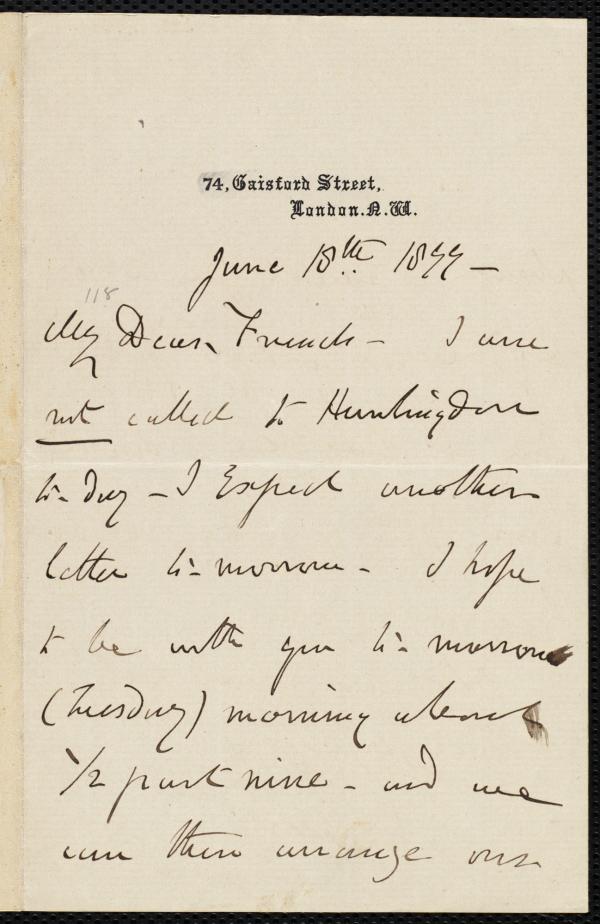 74, Gaisford Street,
London. N. W.
June 18th 1877 -
118
My Dear French - I am
not called to Huntingdon
to-day - I expect another
letter to-morrow - I hope
to be with you to-morrow
(Tuesday) morning about
1/2 past nine - and we
can then arrange our